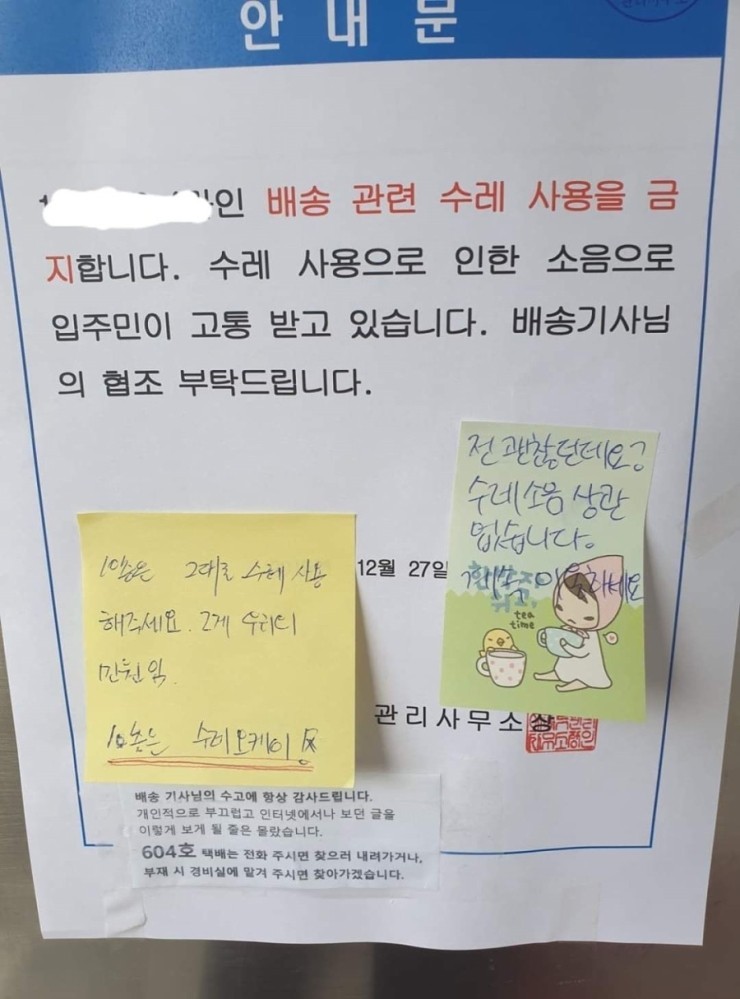 안 내 문
인 배송 관련 수레 사용을 금
지합니다. 수레 사용으로 인한 소음으로
입주민이 고통 받고 있습니다. 배송기사님
의 협조 부탁드립니다.
전 괜찮던데요?
수레소음 상관
없습니다.
계속 이용하세요
tea
time
12월 27일
그대로 수레 사용
해주세요. 그게 우리의
수레 오케이
관리사무소장
배송 기사님의 수고에 항상 감사드립니다.
개인적으로 부끄럽고 인터넷에서나 보던 글을
이렇게 보게 될 줄은 몰랐습니다.
604호 택배는 전화 주시면 찾으러 내려가거나,
부재 시 경비실에 맡겨 주시면 찾아가겠습니다.